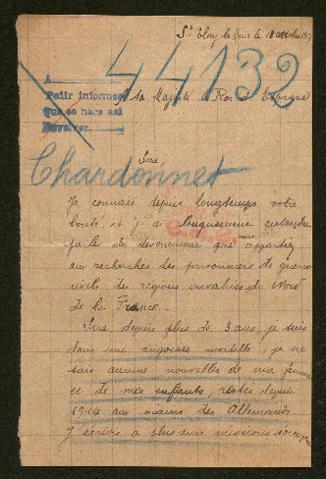 St Eloy les Mines le 18 octobre 19
44132
A
Pedir informes
Que se hace así
Devolver
A Sa Majesté le Roi d'Espagne
Chardonnet
Sire,
Je connais depuis longtemps votre
bonté, et j'ai
parler du dévouement que apportez
aux recherches des prisonniers de guerre
civils des régions envahies du Nord
de la France.
Sire, depuis plus de 3 ans, je suis
dans une angoisse mortelle, je ne
sais aucune nouvelles de ma femme
et de mes enfants, restés depuis
1914 aux mains des Allemands
J'écrivis à plusieurs